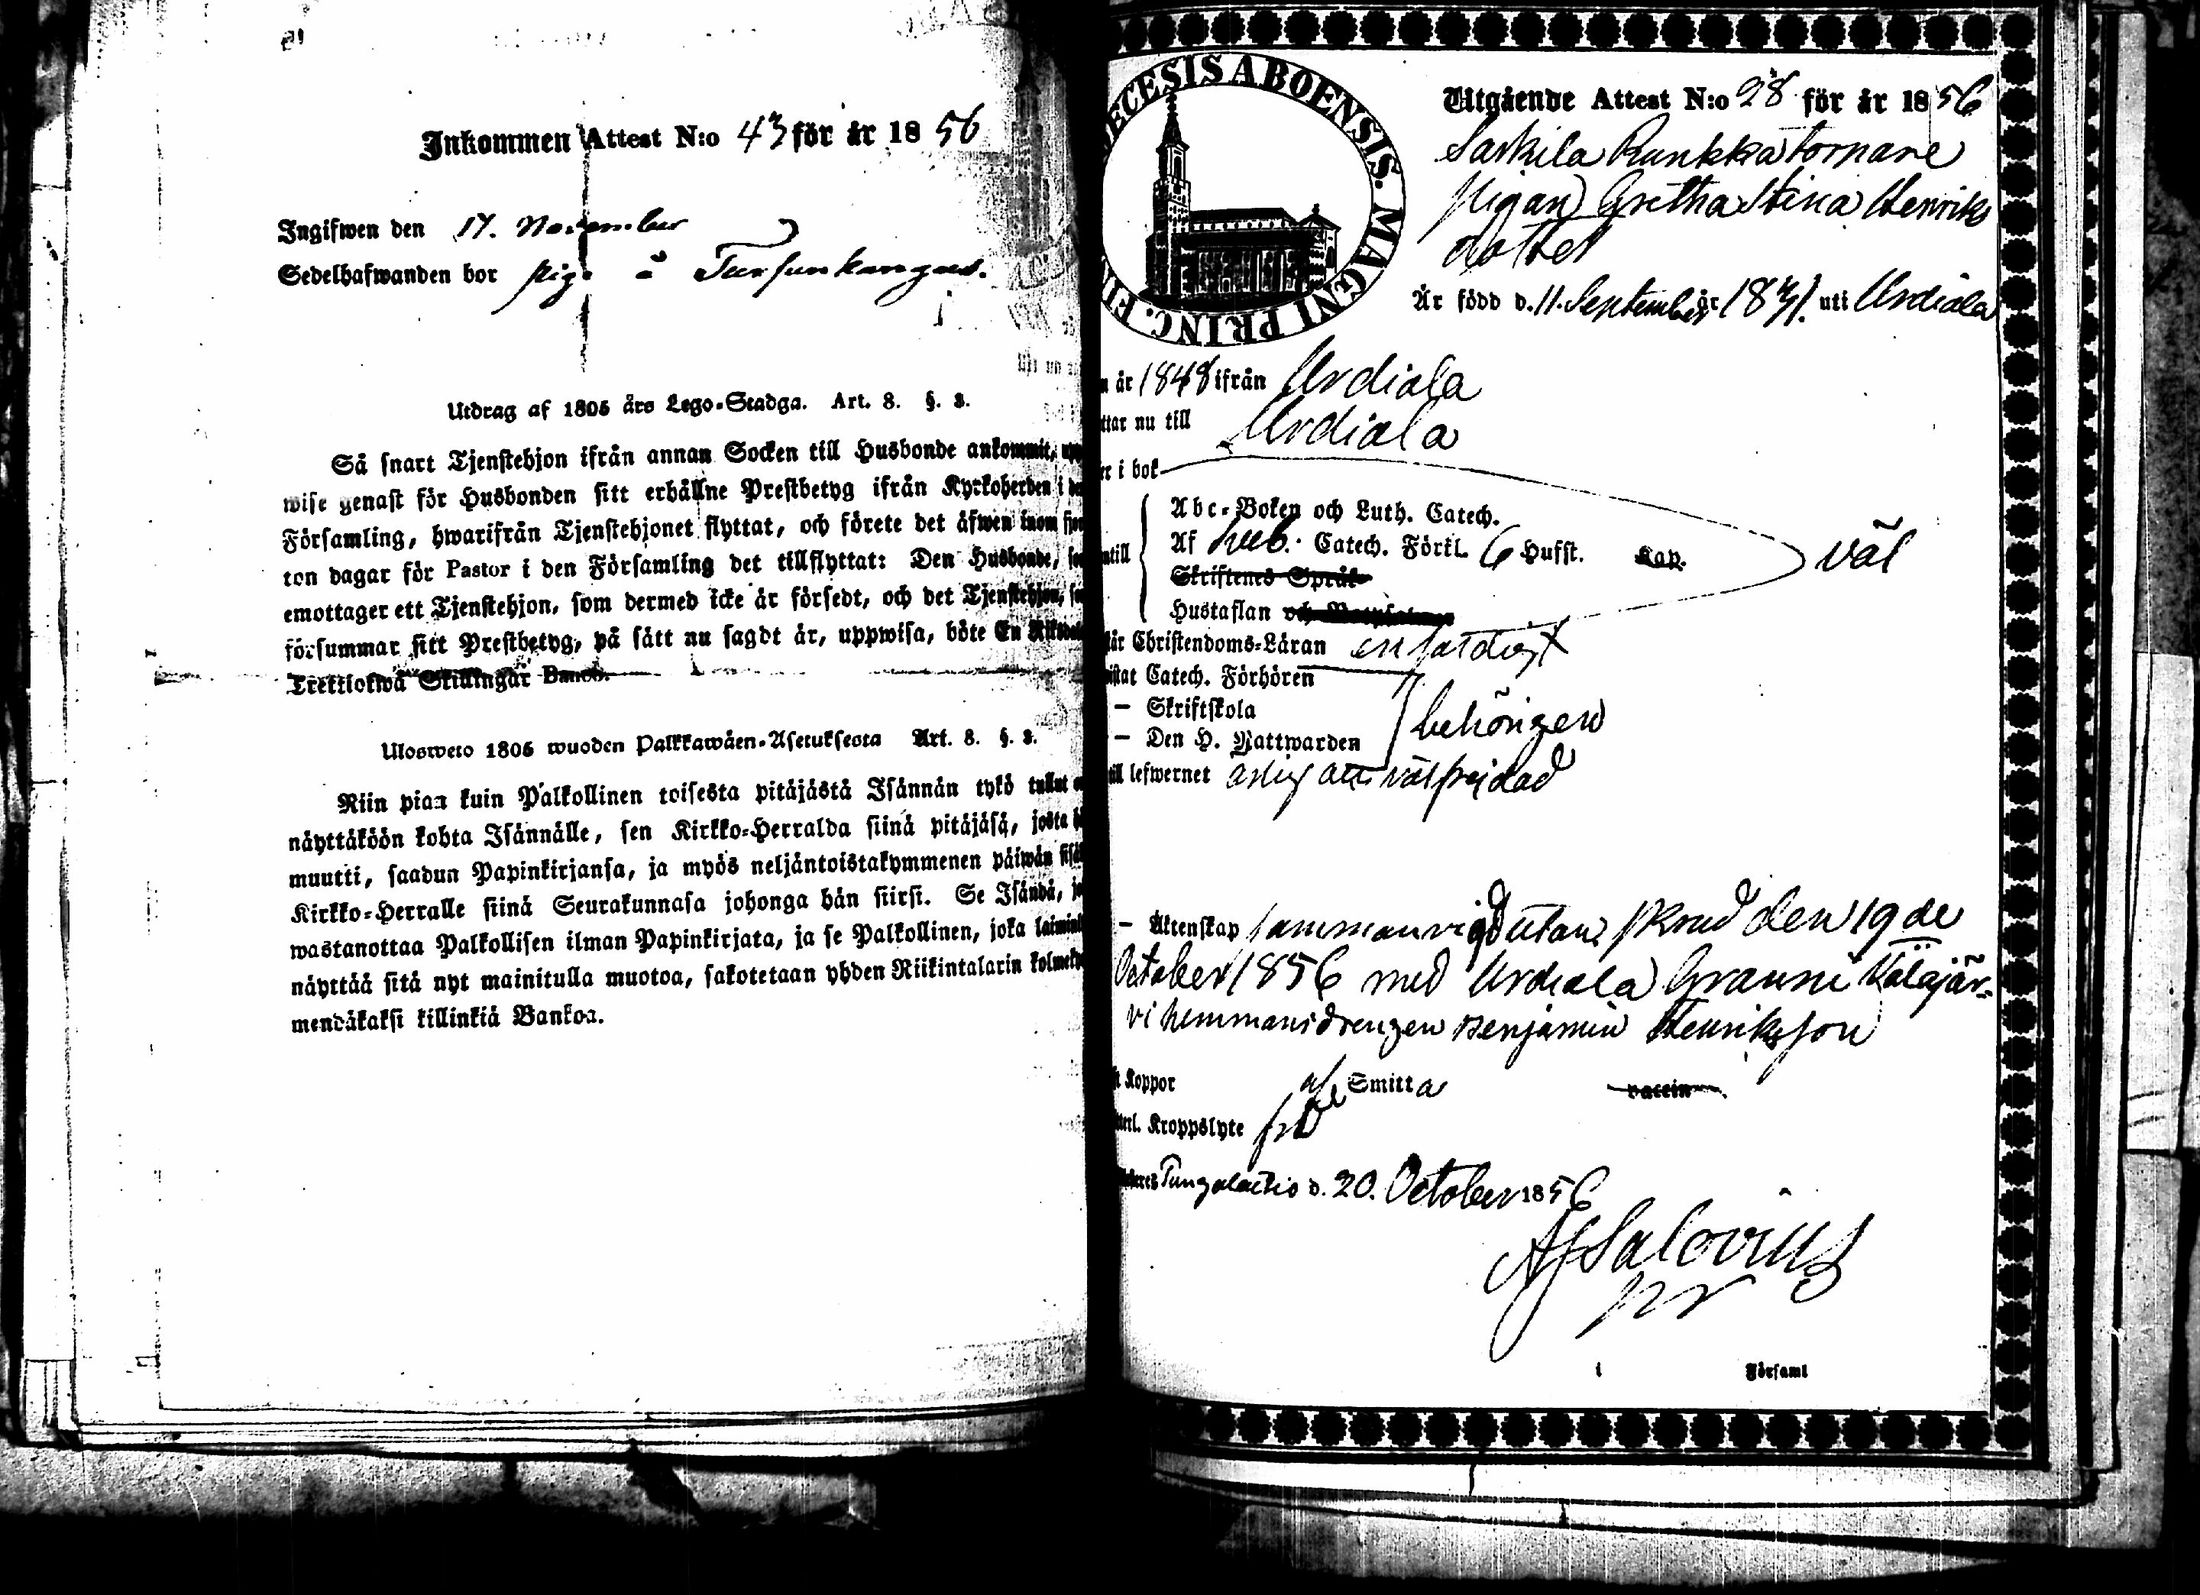 Inkommen Attest N:o 43 för år 1856
Ingifwen den 17. November
Sedelhafwanden bor piga å Tursunkangas.
Utdrag af 1805 års Lego-Stadga. Art. 8. §. 3.
Så snart Tjenstehjon ifrån annan Socken till Husbonde ankommit,
wise genast för Husbonden sitt erhållne Prestbetyg ifrån Kyrkoherden i
Församling, hwarifrån Tjenstehjonet flyttat, och förete det äfwen inom
ton dagar för Pastor i den Församling det tillflyttat: Den Husbonde,
emottager ett Tjenstehjon, som dermed icke är försedt, och det Tjenstehjon,
försummar sitt Prestbetyg, på sätt nu sagdt är, uppwisa, böte En
Trettiotwå Skillingar Banco.
Ulosweto 1805 wuoden Palkkawäen-Asetuksesta Art. 8. §. 3.
Niin pian kuin Palkollinen toisesta pitäjästä Isännän tykö tullut
näyttäköön kohta Isännälle, sen Kirkko-Herralda siinä pitäjäsä, josta
muutti, saadun Papinkirjansa, ja myös neljäntoistakymmenen päiwän
Kirkko-Herralle siinä Seurakunnasa johonga hän siirsi. Se Isändä,
wastanottaa Palkollisen ilman Papinkirjata, ja se Palkollinen, joka
näyttää sitä nyt mainitulla muotoa, sakotetaan yhden Riikintalarin
mendäkaksi killinkiä Bankoa.
ECESIS ABOENSIS. MAGNI PRINC. FI
Utgående Attest N:o 28 för år 1856
Sarkila Runkka torpare
pigan Gretha Stina Henriks
dotter
Är född d. 11. September år 1831. uti Urdiala
år 1848 ifrån Urdiala
ttar nu till Urdiala
er i bok
Abc-Boken och Luth. Catech.
Af Catech. Förkl. 6 Hufst. Kap. väl
ntill
Skriftenes Språk
Hustaflan och
Christendoms-Läran enfaldigt
istat Catech. Förhören
— Skriftskola
— Den H. Nattwarden behörigen
ill lefwernet ärlig och välfrejdad
— Äktenskap sammanvigd utan skrud den 19de
October 1856 med Urdiala Grauni Kalajär-
vi hemmansdrengen Benjamin Henriksson
Koppor af Smitta vaccin
Kroppslyte fri
d. 20. October 1856
AJSalovius
i Församl